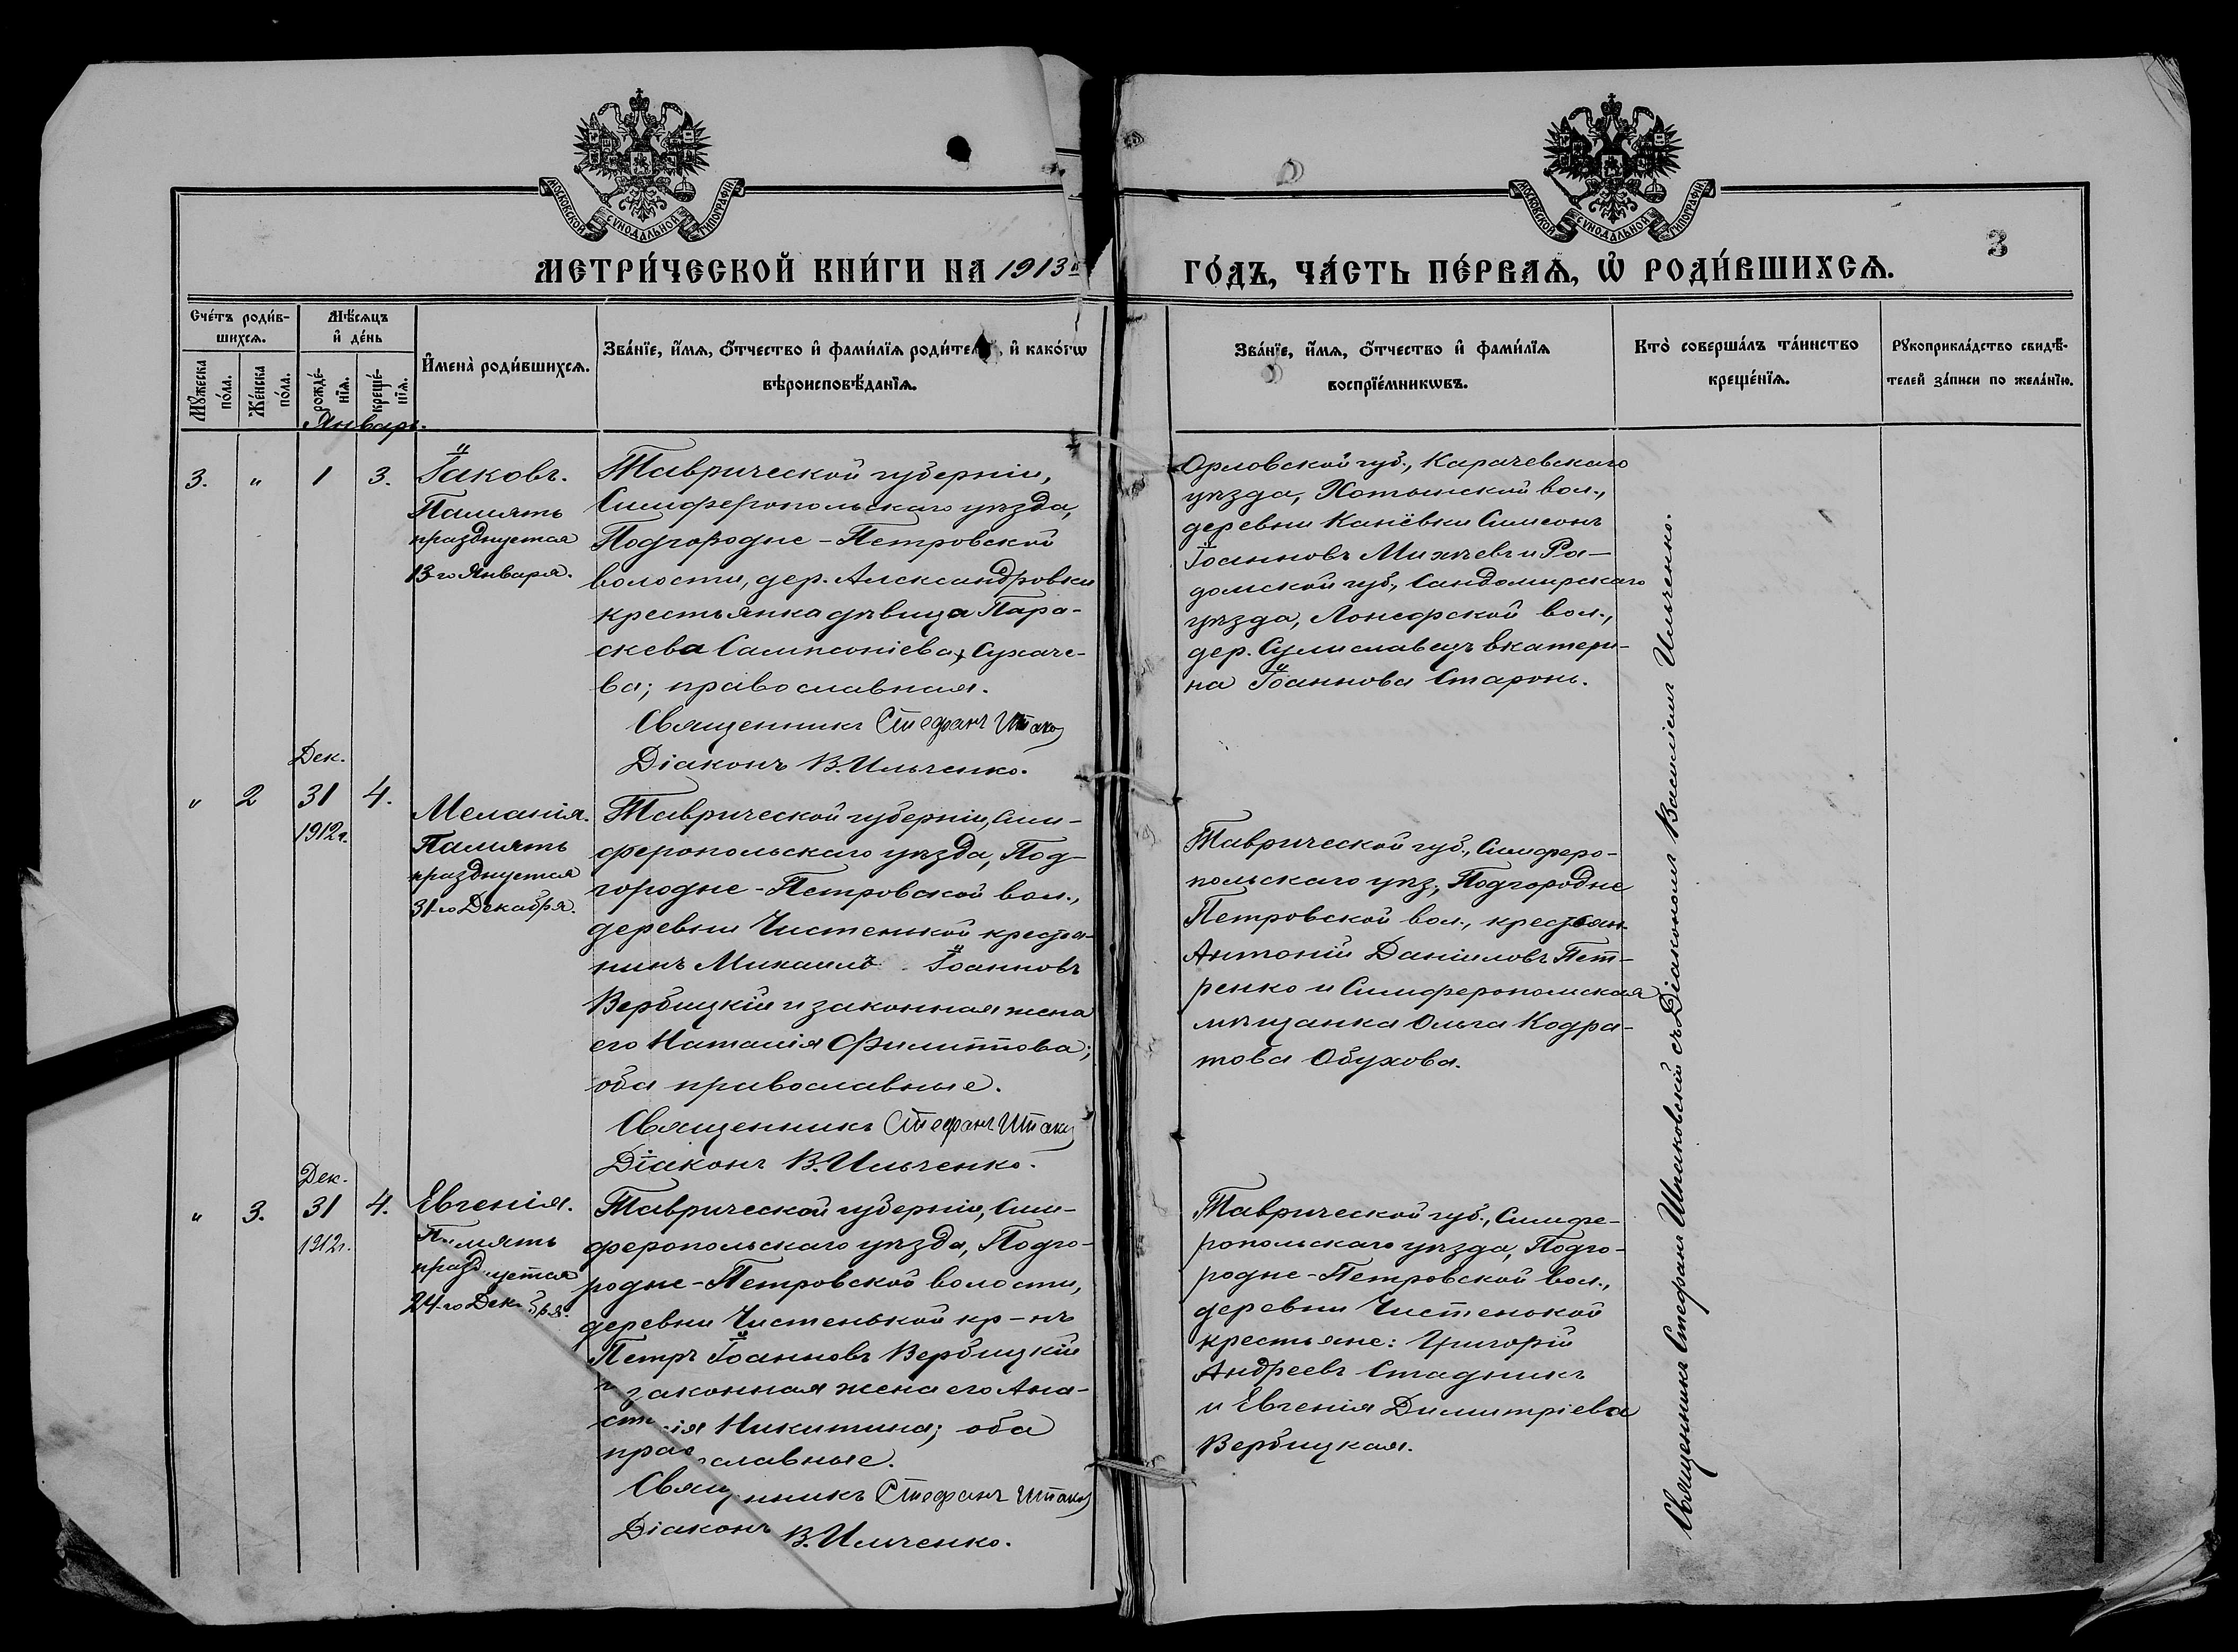 МОСКОВСКОЙ СѴНОДАЛЬНОЙ ТИПОГРАФІИ
МОСКОВСКОЙ СѴНОДАЛЬНОЙ ТИПОГРАФІИ
3
МЕТРИ́ЧЕСКОЙ КНИ́ГИ НА 1913 й ГО́ДЪ, ЧА́СТЬ ПЕ́РВАѦ, Ѡ РОДИ́ВШИХСѦ.
Сче́тъ роди́в-
шихсѧ.
Мѣ́сѧцъ
и҆ де́нь
Мꙋ́жеска по́ла.
Же́нска по́ла.
рожде́-нїѧ.
креще́-нїѧ.
И҆мена̀ роди́вшихсѧ.
Зва́нїе, и҆́мѧ, ѻ҆́тчество и҆ фами́лїѧ роди́тел , и҆ како́гѡ
вѣроисповѣ́данїѧ.
Зва́нїе, и҆́мѧ, ѻ҆́тчество и҆ фами́лїѧ
воспрїе́мникѡвъ.
Кто̀ соверша́лъ та́инство
креще́нїѧ.
Рꙋкоприкла́дство свидѣ́-
телей за́писи по жела́нїю.
Январь.
3. " 1 3.
Іаковъ.
Память
празднуется
13-го Января.
Таврической губерніи,
Симферопольскаго уѣзда,
Подгородне-Петровской
волости, дер. Александровки
крестьянка дѣвица Пара-
скева Сампсоніева Сухаче-
ва; православная.
Священникъ Стефанъ
Діаконъ В. Ильченко.
Орловской губ., Карачевскаго
уѣзда, Хотынской вол.,
деревни Канёвки Симеонъ
Іоанновъ Михѣевъ и Ра-
домской губ., Сандомирскаго
уѣзда, Лонефской вол.,
дер. Сулиславецъ Екатери-
на Іоаннова Старонь.
Дек.
" 2 31 4.
1912 г.
Меланія.
Память
празднуется
31-го Декабря.
Таврической губерніи, Сим-
феропольскаго уѣзда, Под-
городне-Петровской вол.,
деревни Чистенькой крестья-
нинъ Михаилъ Іоанновъ
Вербицкій и законная жена
его Наталія Филиппова;
оба православные.
Священникъ Стефанъ
Діаконъ В. Ильченко.
Таврической губ., Симферо-
польскаго уѣз., Подгородне
Петровской вол., крестьян.
Антоній Даніиловъ Пет-
ренко и Симферопольская
мѣщанка Ольга Кодра-
това Обухова.
Дек.
" 3. 31 4.
1912 г.
Евгенія.
Память
празднуется
24-го Декабря.
Таврической губерніи, Сим-
феропольскаго уѣзда, Подго-
родне-Петровской волости,
деревни Чистенькой кр-нъ
Петръ Іоанновъ Вербицкій
и законная жена его Ана-
стасія Никитина; оба
православные.
Священникъ Стефанъ
Діаконъ В. Ильченко.
Таврической губ., Симфе-
ропольскаго уѣзда, Подго-
родне-Петровской вол.,
деревни Чистенькой
крестьяне: Григорій
Андреевъ Стадникъ
и Евгенія Димитріева
Вербицкая.
Священникъ Стефанъ Шпаковскій съ Діакономъ Василіемъ Ильченко.